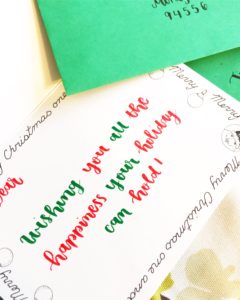 94556
Merry
Christmas one
wishing you all the
happiness your holiday
can hold!
Merry Christmas one and
Merry